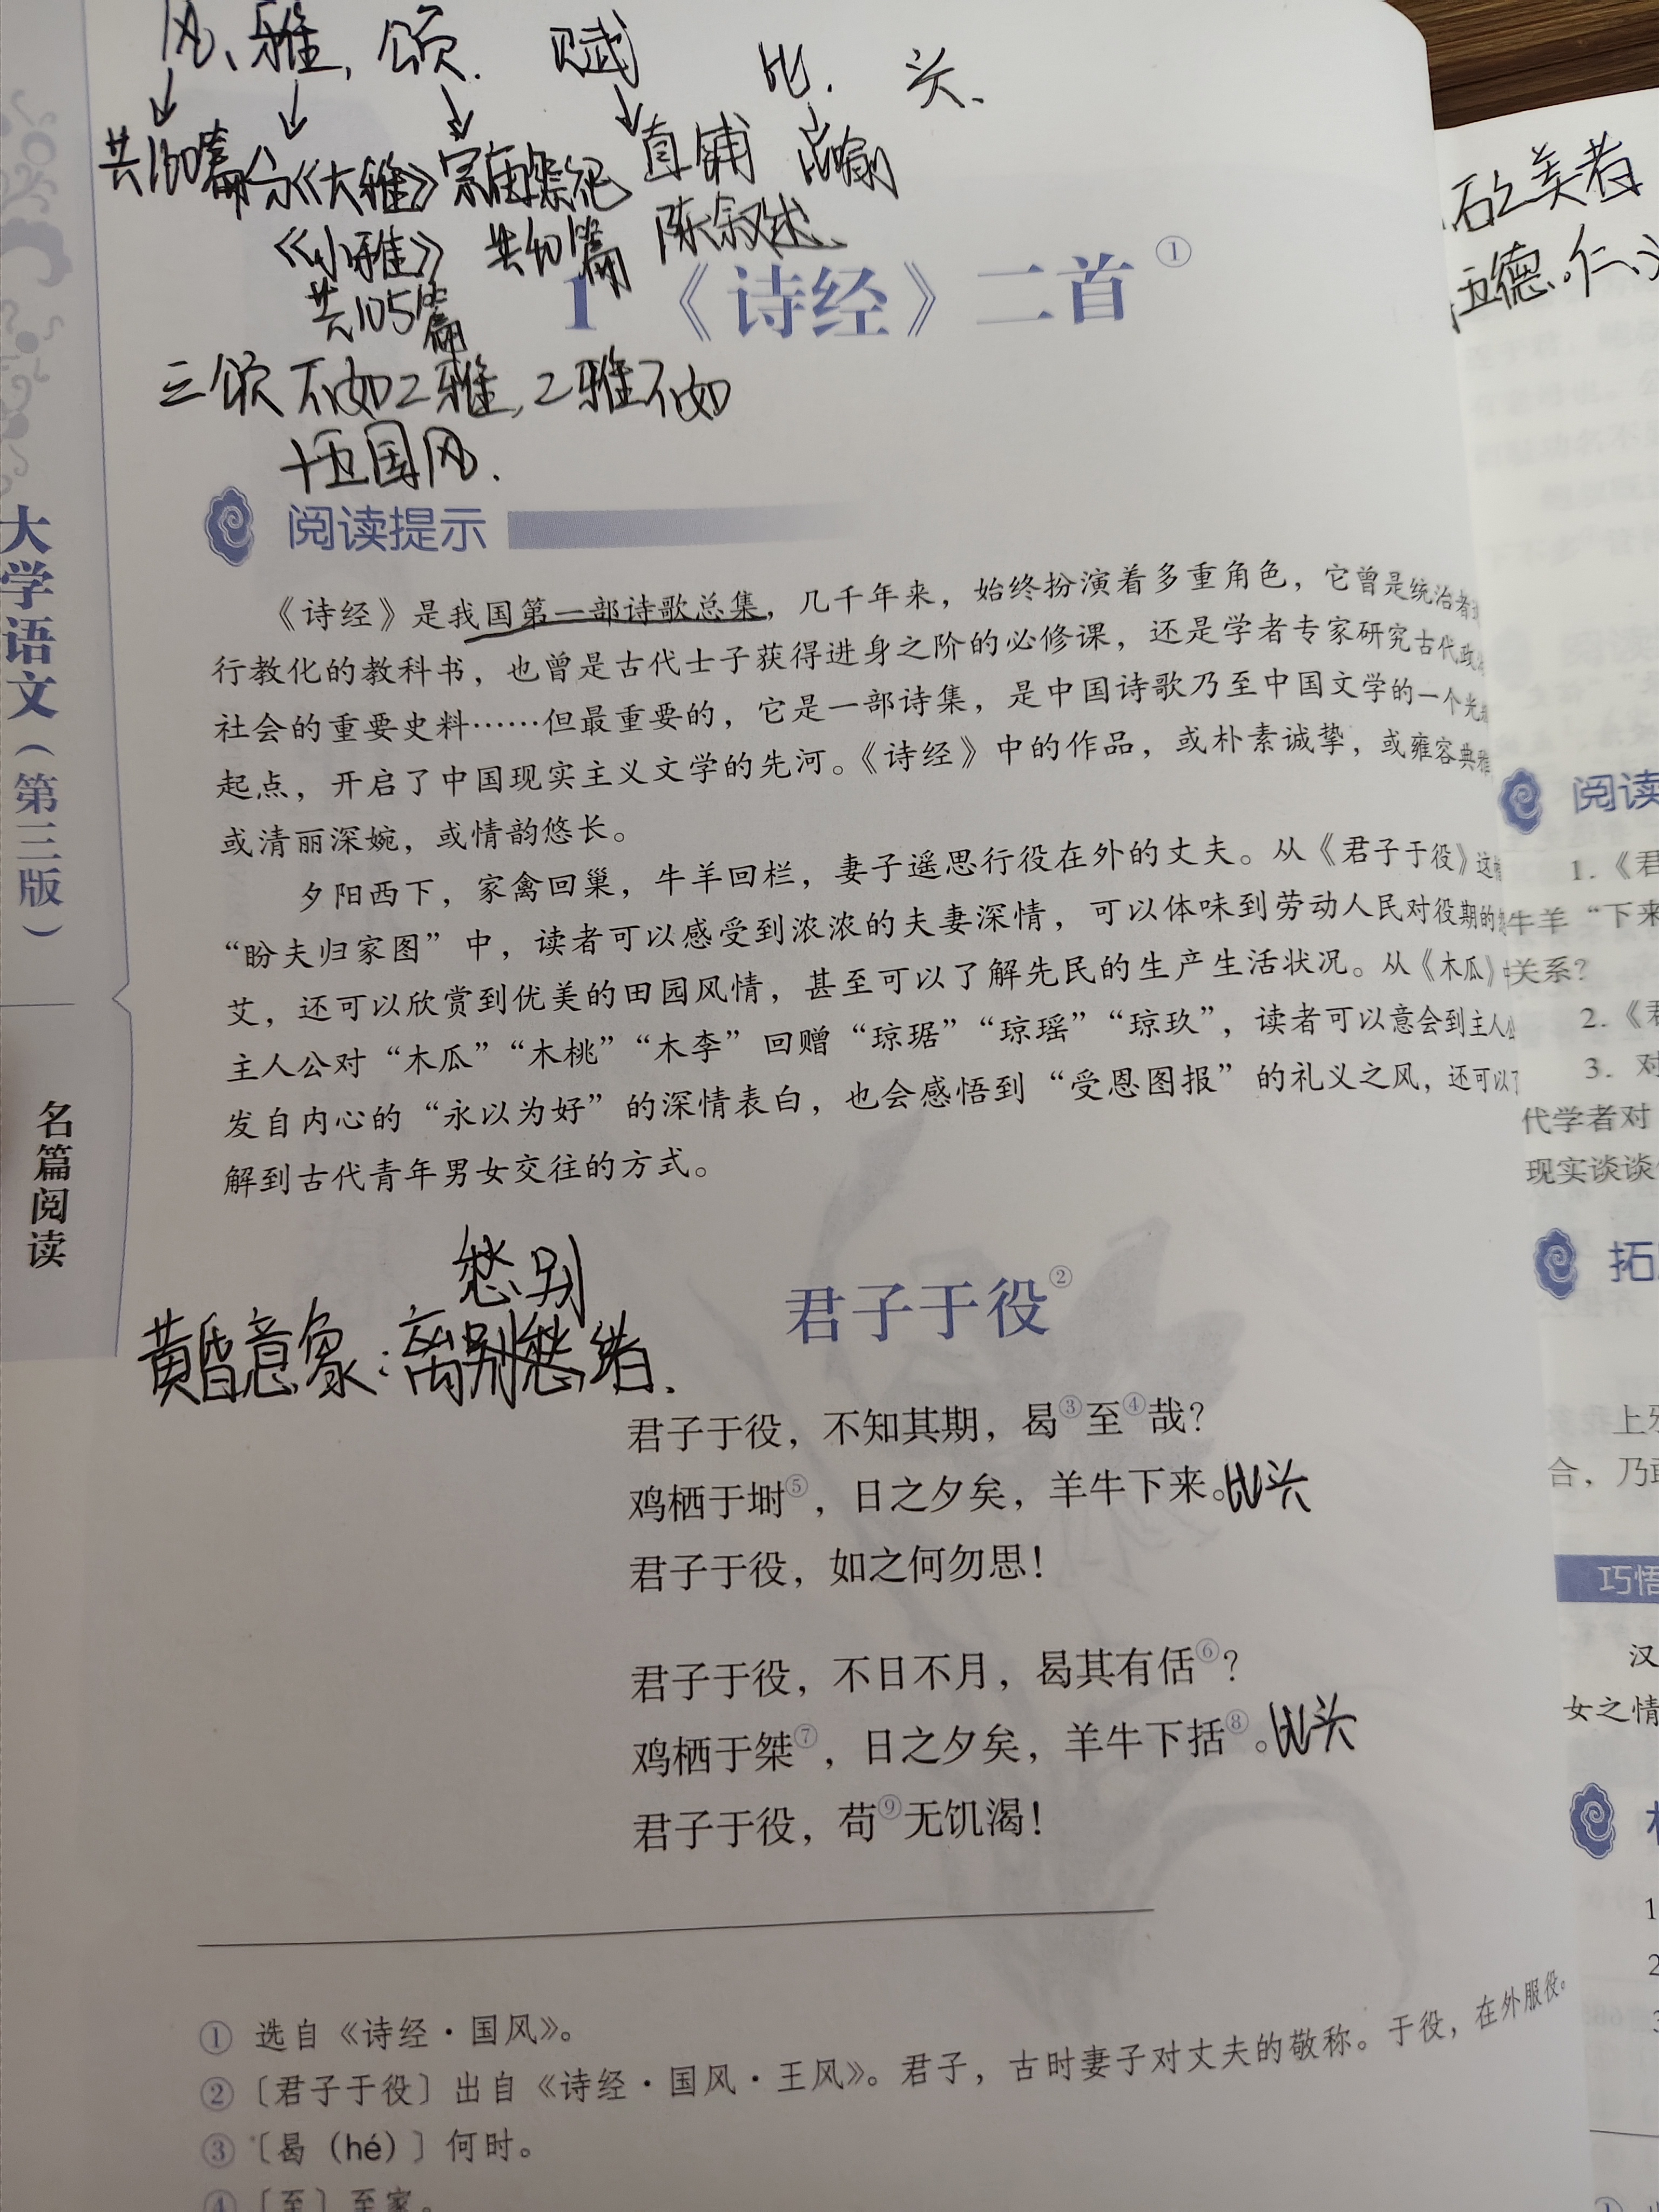 风、雅、颂. 赋 比. 兴、
共160篇 分《大雅》 宗庙祭祀 直铺 比喻
《小雅》 共40篇 陈叙述、
共105篇
1 《诗经》二首①
三颂不如二雅,二雅不如
十五国风.
阅读提示
《诗经》是我国第一部诗歌总集，几千年来，始终扮演着多重角色，它曾是统治者
行教化的教科书，也曾是古代士子获得进身之阶的必修课，还是学者专家研究古代政
社会的重要史料……但最重要的，它是一部诗集，是中国诗歌乃至中国文学的一个光
起点，开启了中国现实主义文学的先河。《诗经》中的作品，或朴素诚挚，或雍容典雅
或清丽深婉，或情韵悠长。
夕阳西下，家禽回巢，牛羊回栏，妻子遥思行役在外的丈夫。从《君子于役》这
“盼夫归家图”中，读者可以感受到浓浓的夫妻深情，可以体味到劳动人民对役期的
艾，还可以欣赏到优美的田园风情，甚至可以了解先民的生产生活状况。从《木瓜》
主人公对“木瓜”“木桃”“木李”回赠“琼琚”“琼瑶”“琼玖”，读者可以意会到主人公
发自内心的“永以为好”的深情表白，也会感悟到“受恩图报”的礼义之风，还可以
解到古代青年男女交往的方式。
愁别
黄昏意象:离别愁绪.
君子于役②
君子于役，不知其期，曷③至④哉？
鸡栖于埘⑤，日之夕矣，羊牛下来。比兴
君子于役，如之何勿思！
君子于役，不日不月，曷其有佸⑥？
鸡栖于桀⑦，日之夕矣，羊牛下括⑧。比兴
君子于役，苟⑨无饥渴！
① 选自《诗经·国风》。
② 〔君子于役〕出自《诗经·国风·王风》。君子，古时妻子对丈夫的敬称。于役，在外服役。
③ 〔曷（hé）〕何时。
④ 〔至〕至家。
大学语文（第三版）
名篇阅读
石之美者
五德.仁、
阅读
1.《君
牛羊“下来
关系？
2.《君
3. 对
代学者对
现实谈谈
拓
上邪
合，乃敢
巧悟
汉
女之情
1
2
3